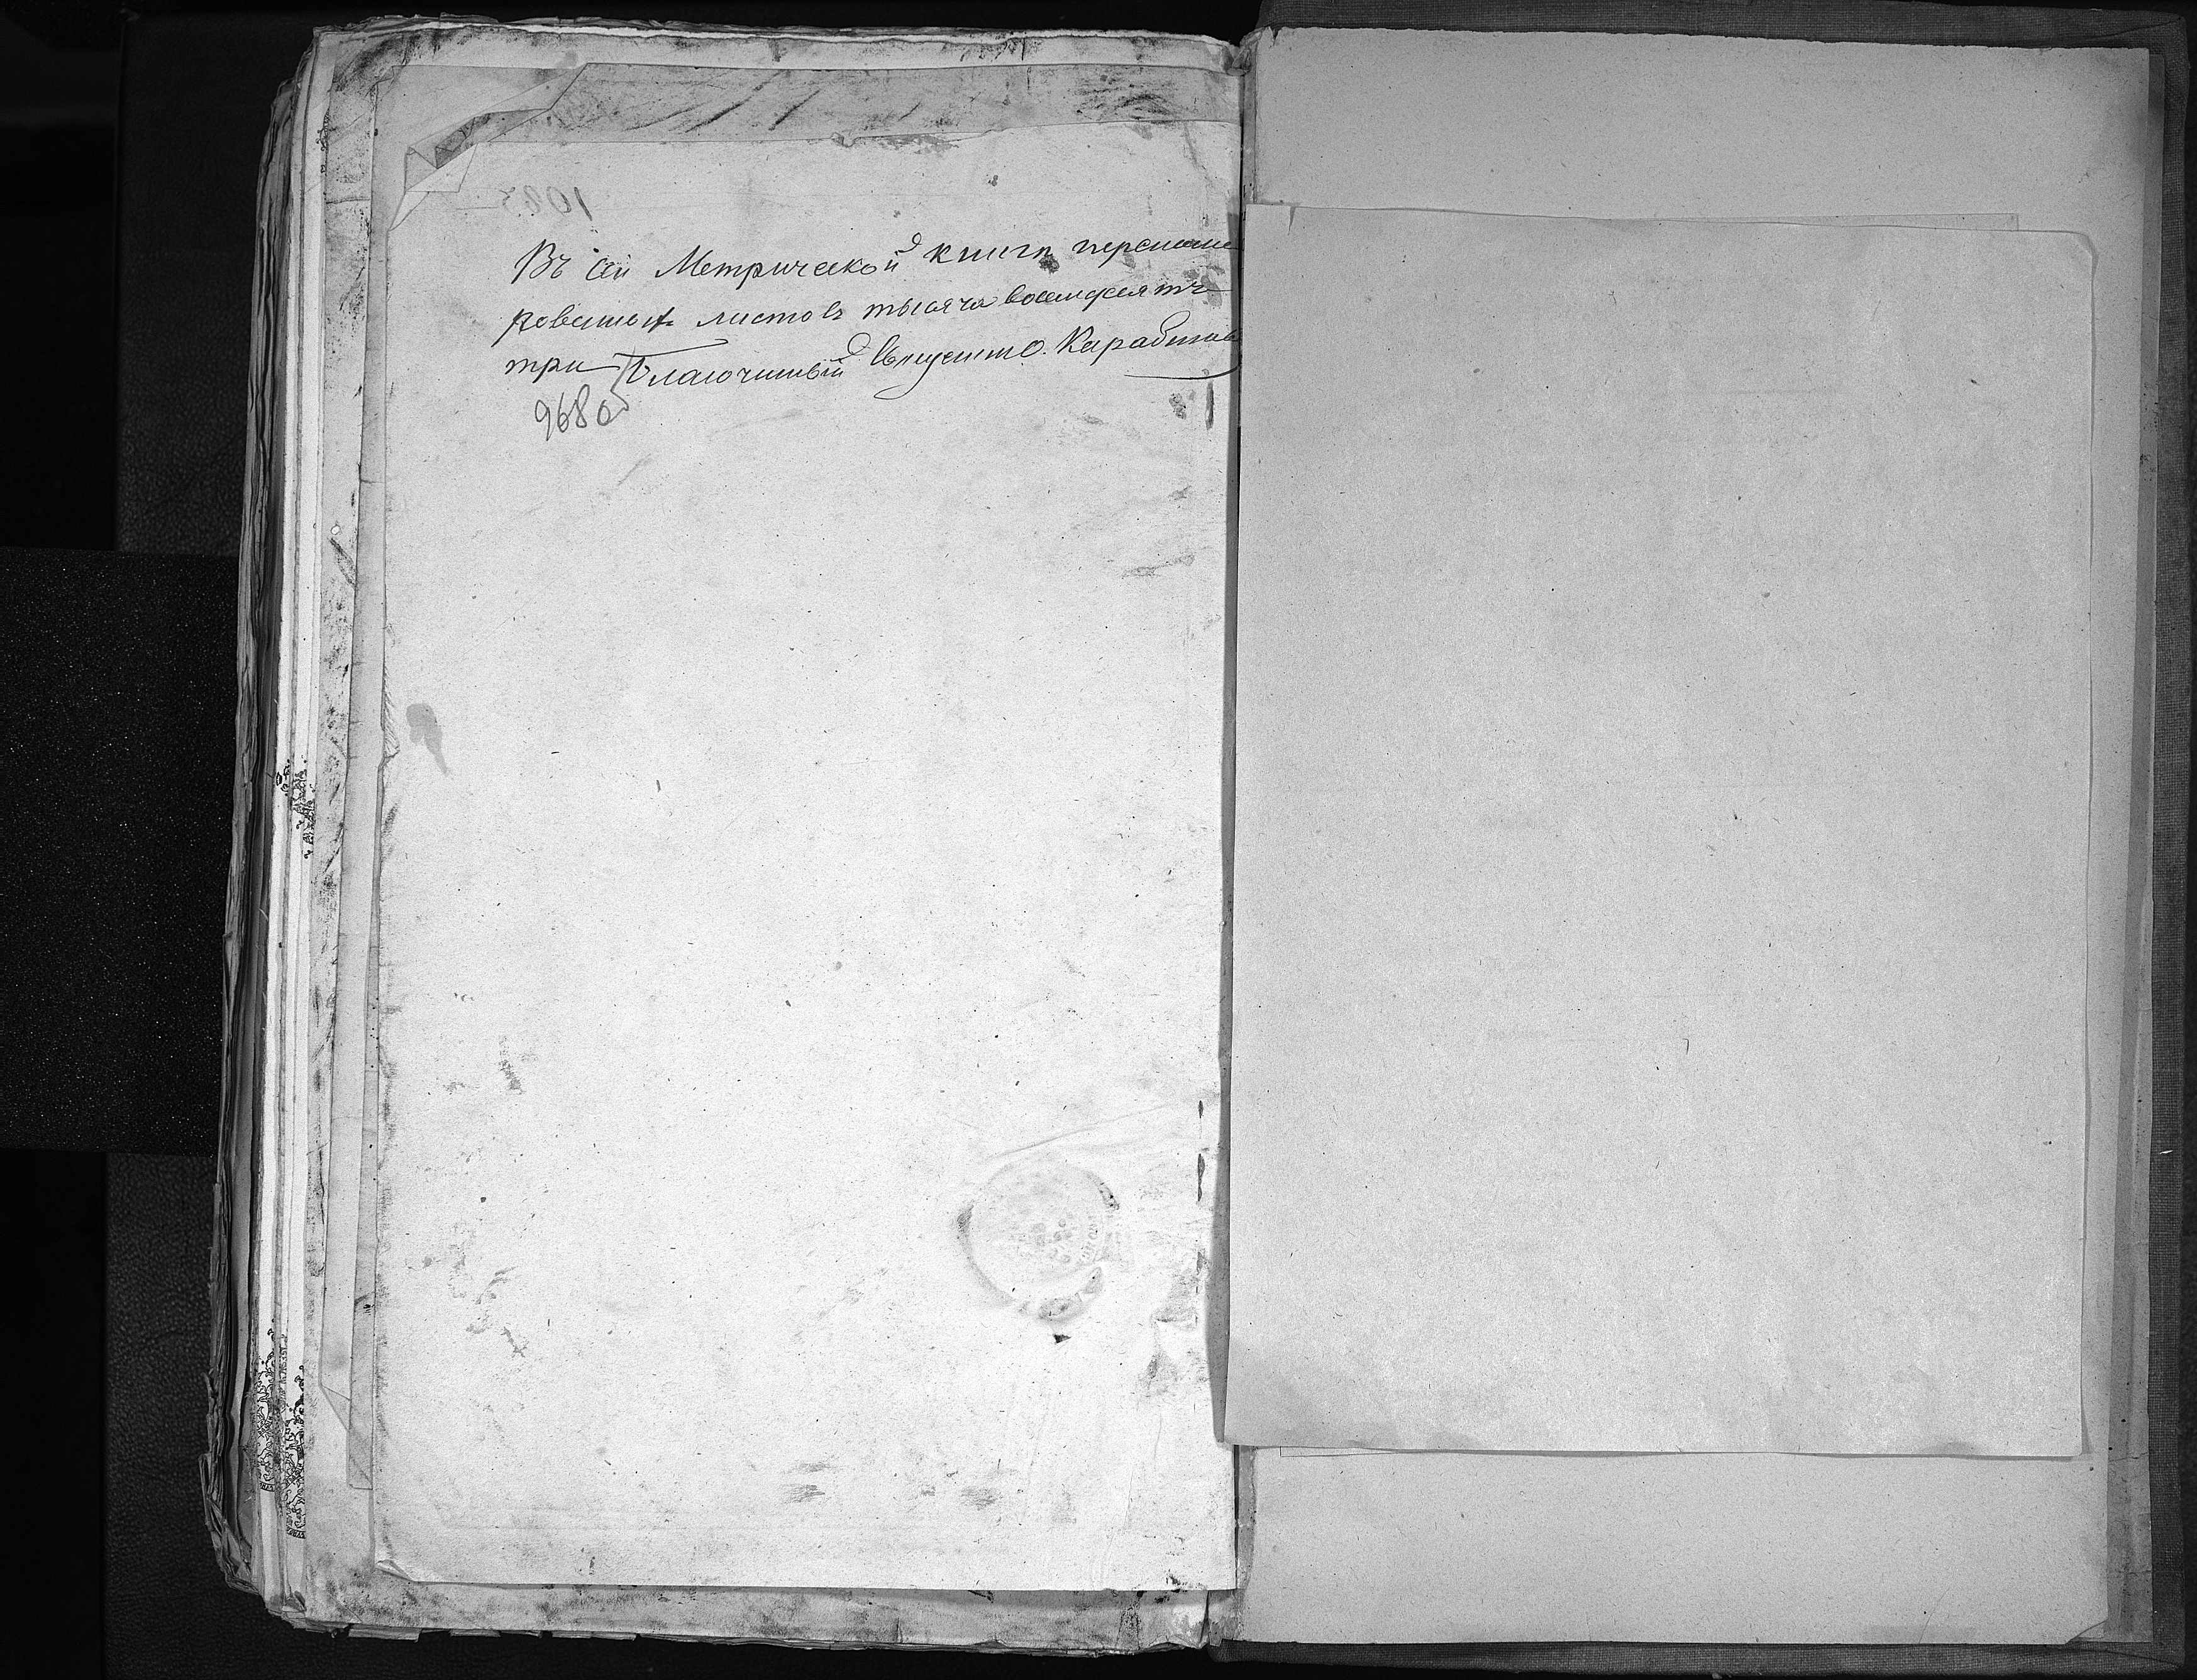 1083
Въ сей Метрической книгѣ перенуме
рованныхъ листовъ тысяча восемдесятъ
три Благочинный Свящ
9680